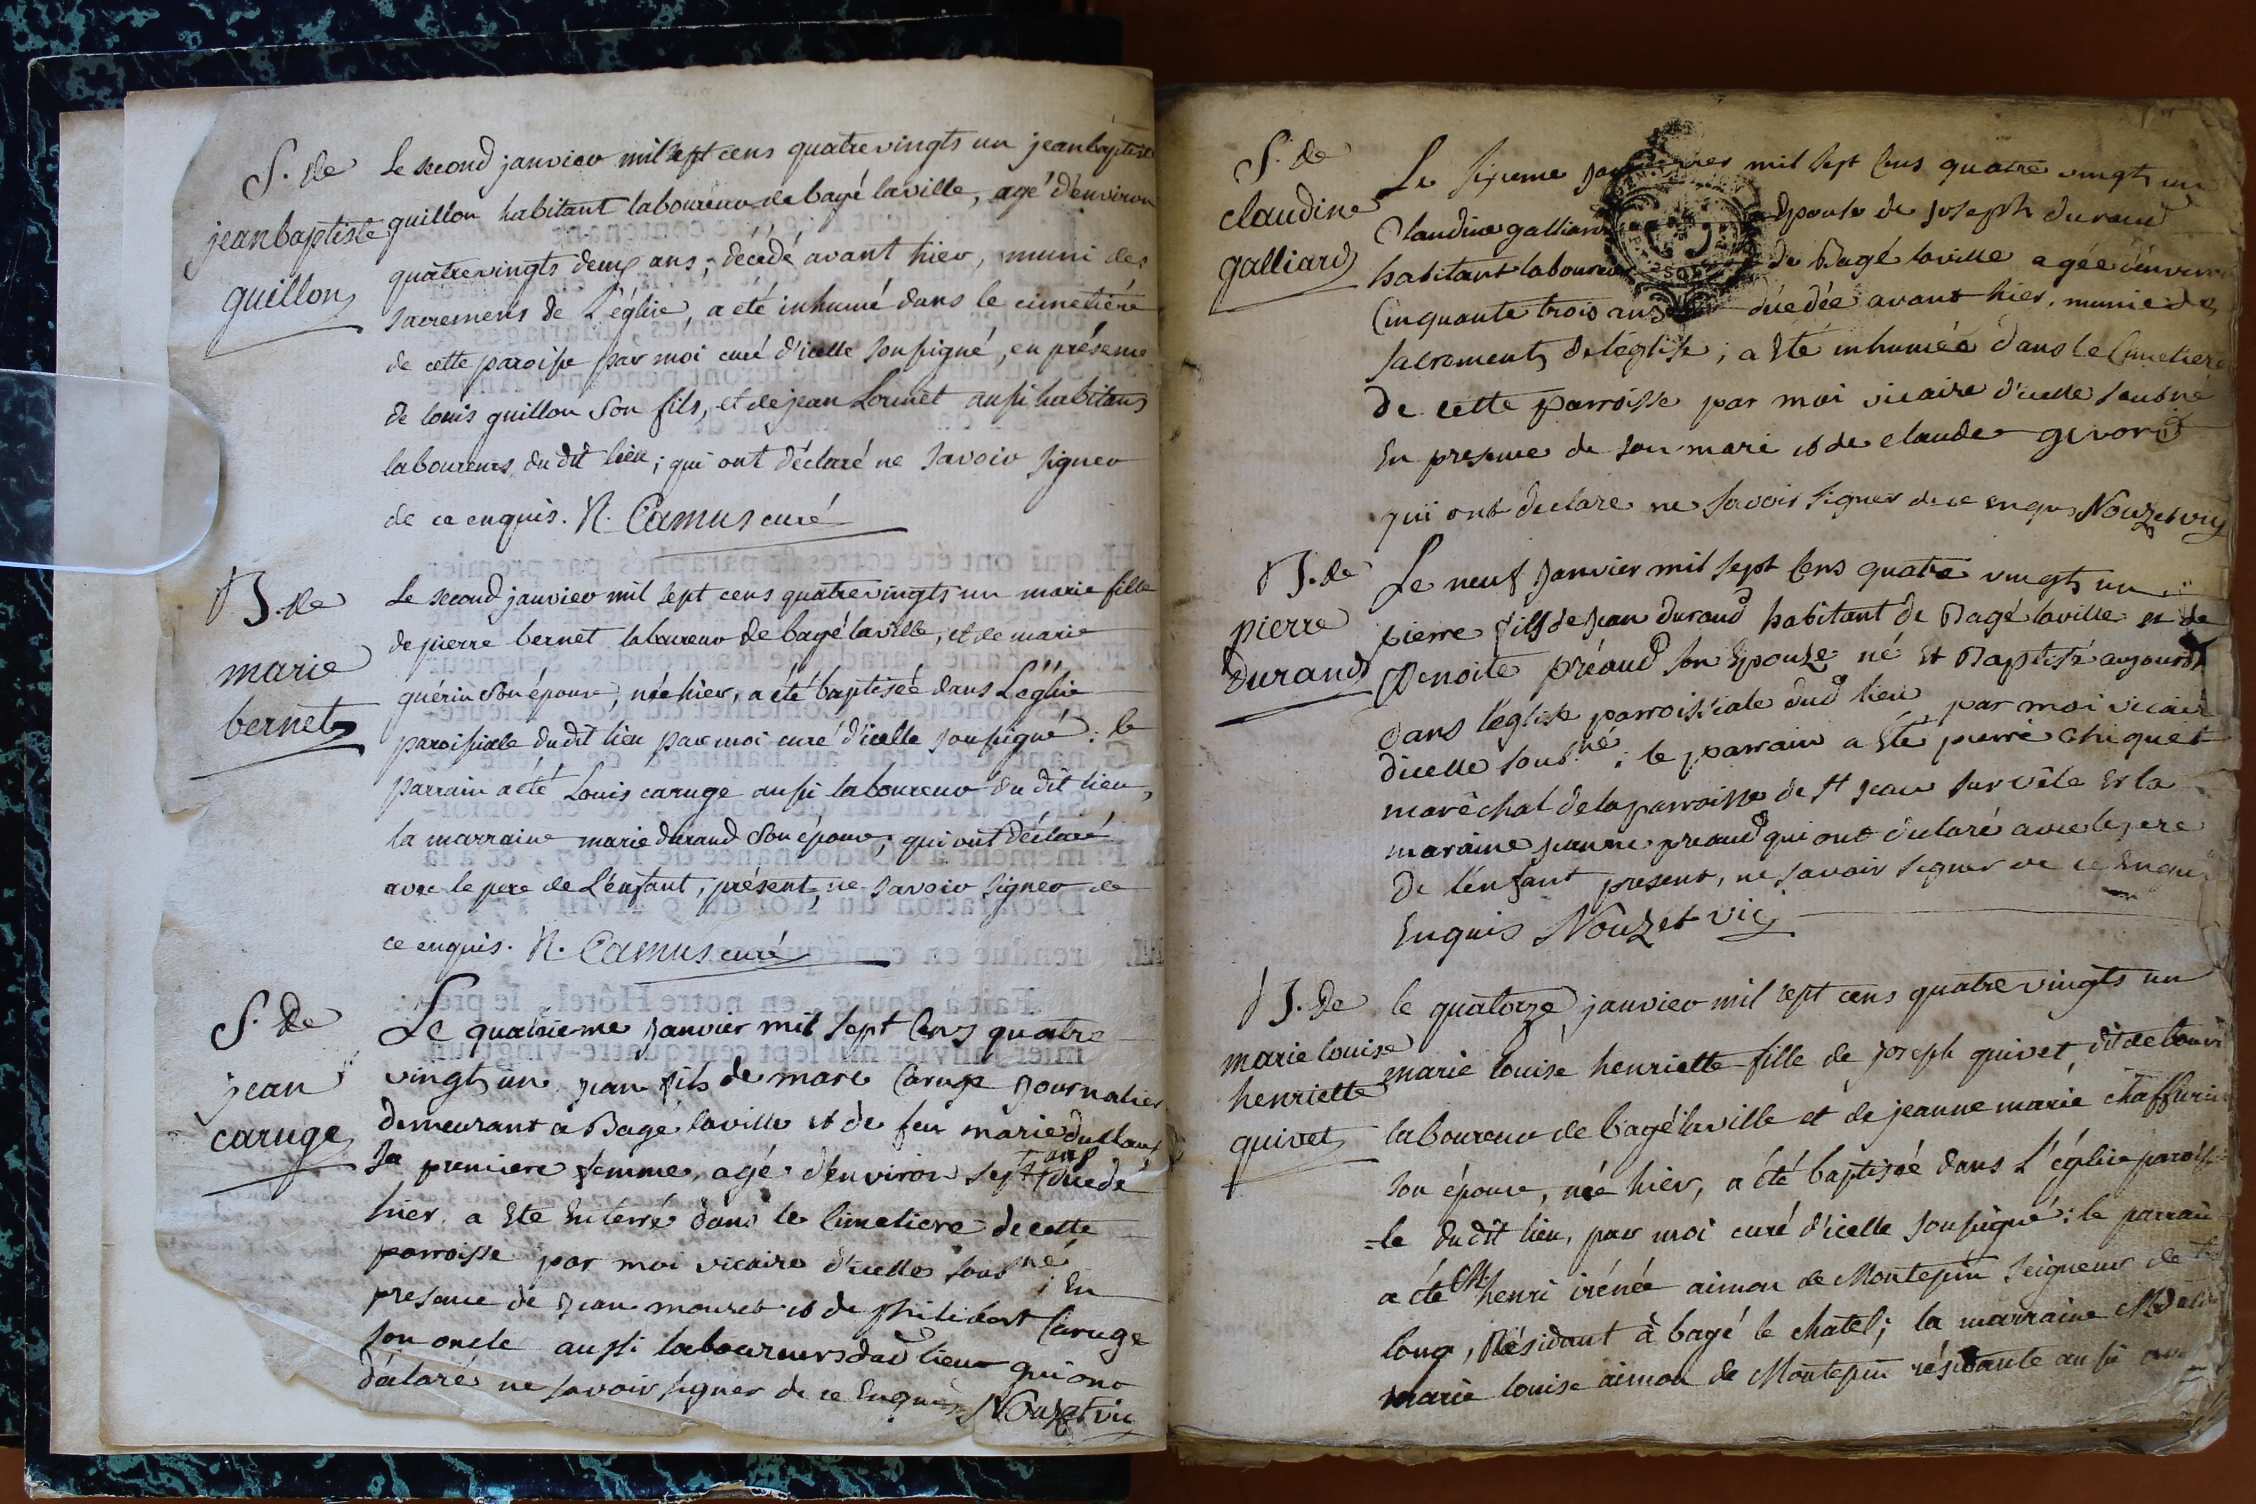 S. de
jean baptiste
guillon
Le second janvier mil sept cens quatre vingts un jean baptiste
guillon habitant laboureur de bagé laville, agé d'environ
quatre vingts deux ans, décédé avant hier, muni des
sacremens de L'église, a eté inhumé dans le cimetière
de cette paroisse par moi curé d'icelle soussigné, en présence
de louis guillon son fils, et de jean Lounet aussi habitans
laboureurs du dit lieu; qui ont déclaré ne savoir signer
de ce enquis. N. Camus curé
B. de
marie
bernet
Le second janvier mil sept cens quatre vingts un marie fille
de pierre bernet laboureur de bagé laville, et de marie
guérin son épouse, née hier, a été baptisée dans L'église
paroissiale du dit lieu par moi curé d'icelle soussigné: le
parrain a été Louis caruge aussi laboureur du dit lieu,
la marraine marie durand son épouse, qui ont déclaré
avec le pere de L'enfant, présent, ne savoir signer de
ce enquis. N. Camus curé
S. de
jean
caruge
Le quatrieme janvier mil sept Cens quatre
vingt un jean fils de marc Caruge journalier
demeurant a Bagé laville et de feu marie
sa premiere femme, agé d'environ sept ans décédé
hier a Eté Enterré dans le Cimetiere de cette
parroisse par moi vicaire d'icelle sousné, En
presence de jean mouret et de philibert Caruge
son oncle aussi laboureurs dud lieu qui ont
déclaré ne savoir signer de ce Enquis Nouzet vic
S. de
claudine
galliard
Le sixieme janvier mil sept Cens quatre vingt un
Claudine galliard Epouse de joseph durand
habitant laboureur de Bagé laville agée d'environ
Cinquante trois ans décédée avant hier, munie des
sacrements de l'église, a Eté inhumée dans le Cimetiere
de cette parroisse par moi vicaire d'icelle sousné
En presence de son mari et de claude givord
qui ont declare ne savoir signer de ce enquis Nouzet vic
B. de
pierre
durand
Le neuf janvier mil sept Cens quatre vingt un
pierre fils de jean durand habitant de Bagé laville et de
Benoite préaud son Epouse né Et Baptisé aujourd
dans l'église parroissiale dud lieu par moi vicaire
dicelle sousné: le parrain a Eté pierre chiquet
maréchal de la parroisse de st jean sur vêle Et la
maraine jeanne preaud qui ont declaré avec le pere
de l'enfant present, ne savoir signer de ce Enquis
Enquis Nouzet vic
B. de
marie louise
henriette
quivet
le quatorze janvier mil sept cens quatre vingts un
marie louise henriette fille de joseph quivet, dit de
laboureur de bagé laville et de jeanne marie chaffurin
son épouse, née hier, a été baptisée dans L'église paroissia
=le du dit lieu, par moi curé d'icelle soussigné: le parrain
a été Mr henri irénée aimon de Montepin seigneur de
long, Résidant à bagé le chatel; la marraine
marie louise aimon de Montepin résidante aussi